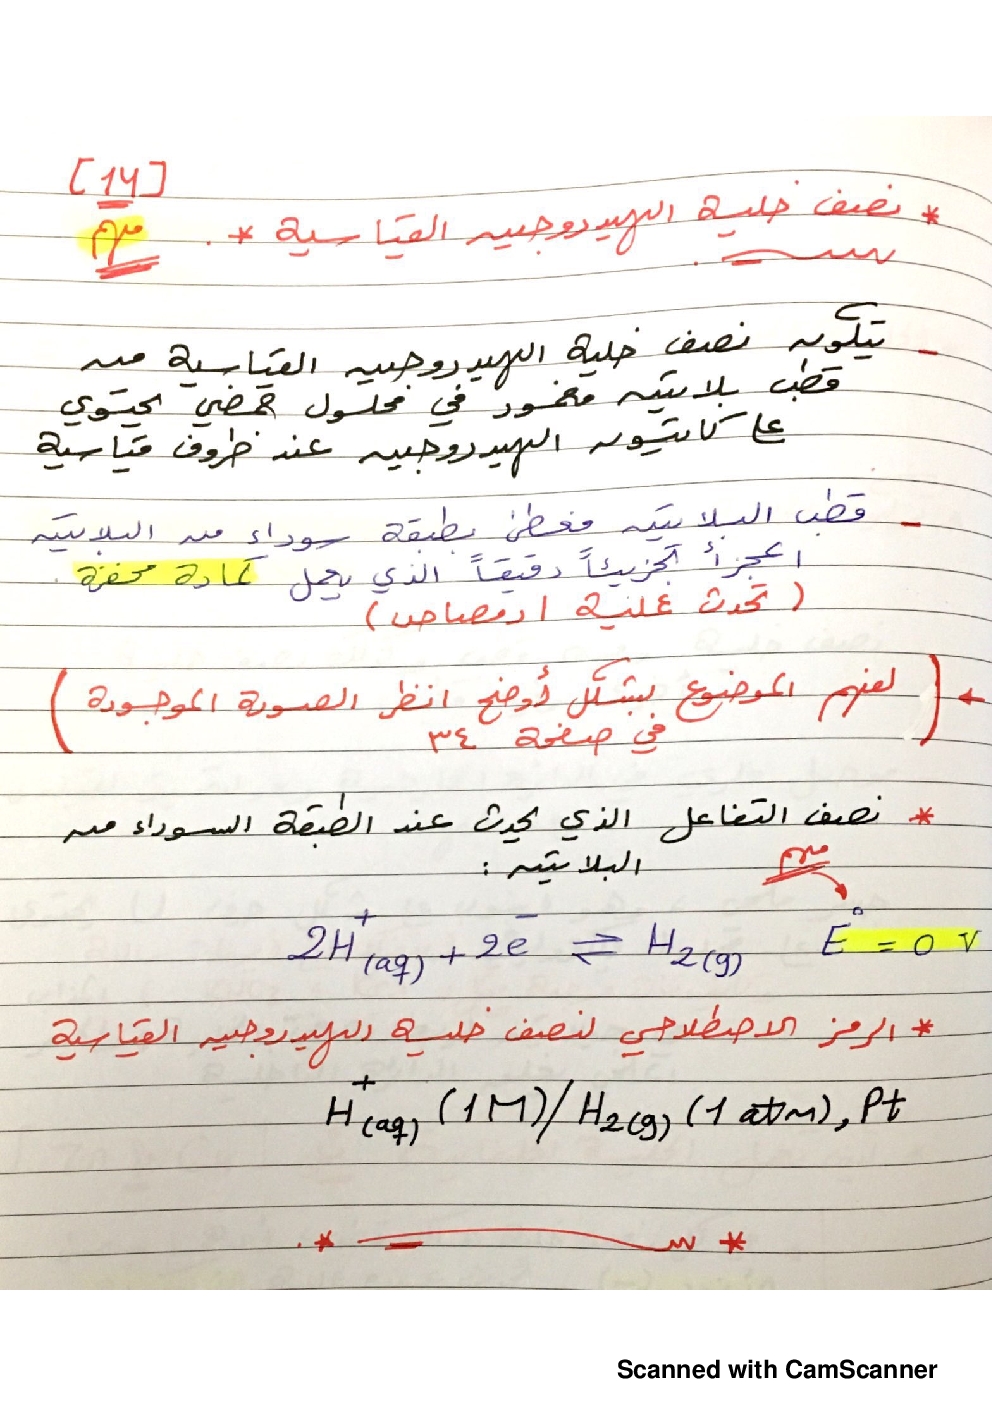 [14]
* نصف خلية الهيدروجين القياسية * .
مهم
– يتكون نصف خلية الهيدروجين القياسية من
قطب بلاتين مغمور في محلول حمضي يحتوي
على كاتيون الهيدروجين عند ظروف قياسية
– قطب البلاتين مغطى بطبقة سوداء من البلاتين
المجزأ تجزيئاً دقيقاً الذي يعمل كمادة محفزة .
( تحدث عملية ادمصاص )
← ( لفهم الموضوع بشكل أوضح انظر الصورة الموجودة
في صفحة ٣٤ )
* نصف التفاعل الذي يحدث عند الطبقة السوداء من
البلاتين :
مهم
2H⁺(aq) + 2e⁻ ⇌ H₂(g) E° = 0 V
* الرمز الاصطلاحي لنصف خلية الهيدروجين القياسية
H⁺(aq) (1M)/H₂(g) (1 atm), Pt
Scanned with CamScanner